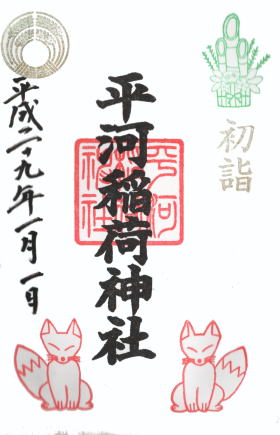 初詣
平河稲荷神社
平河
神社
平成二十九年一月一日